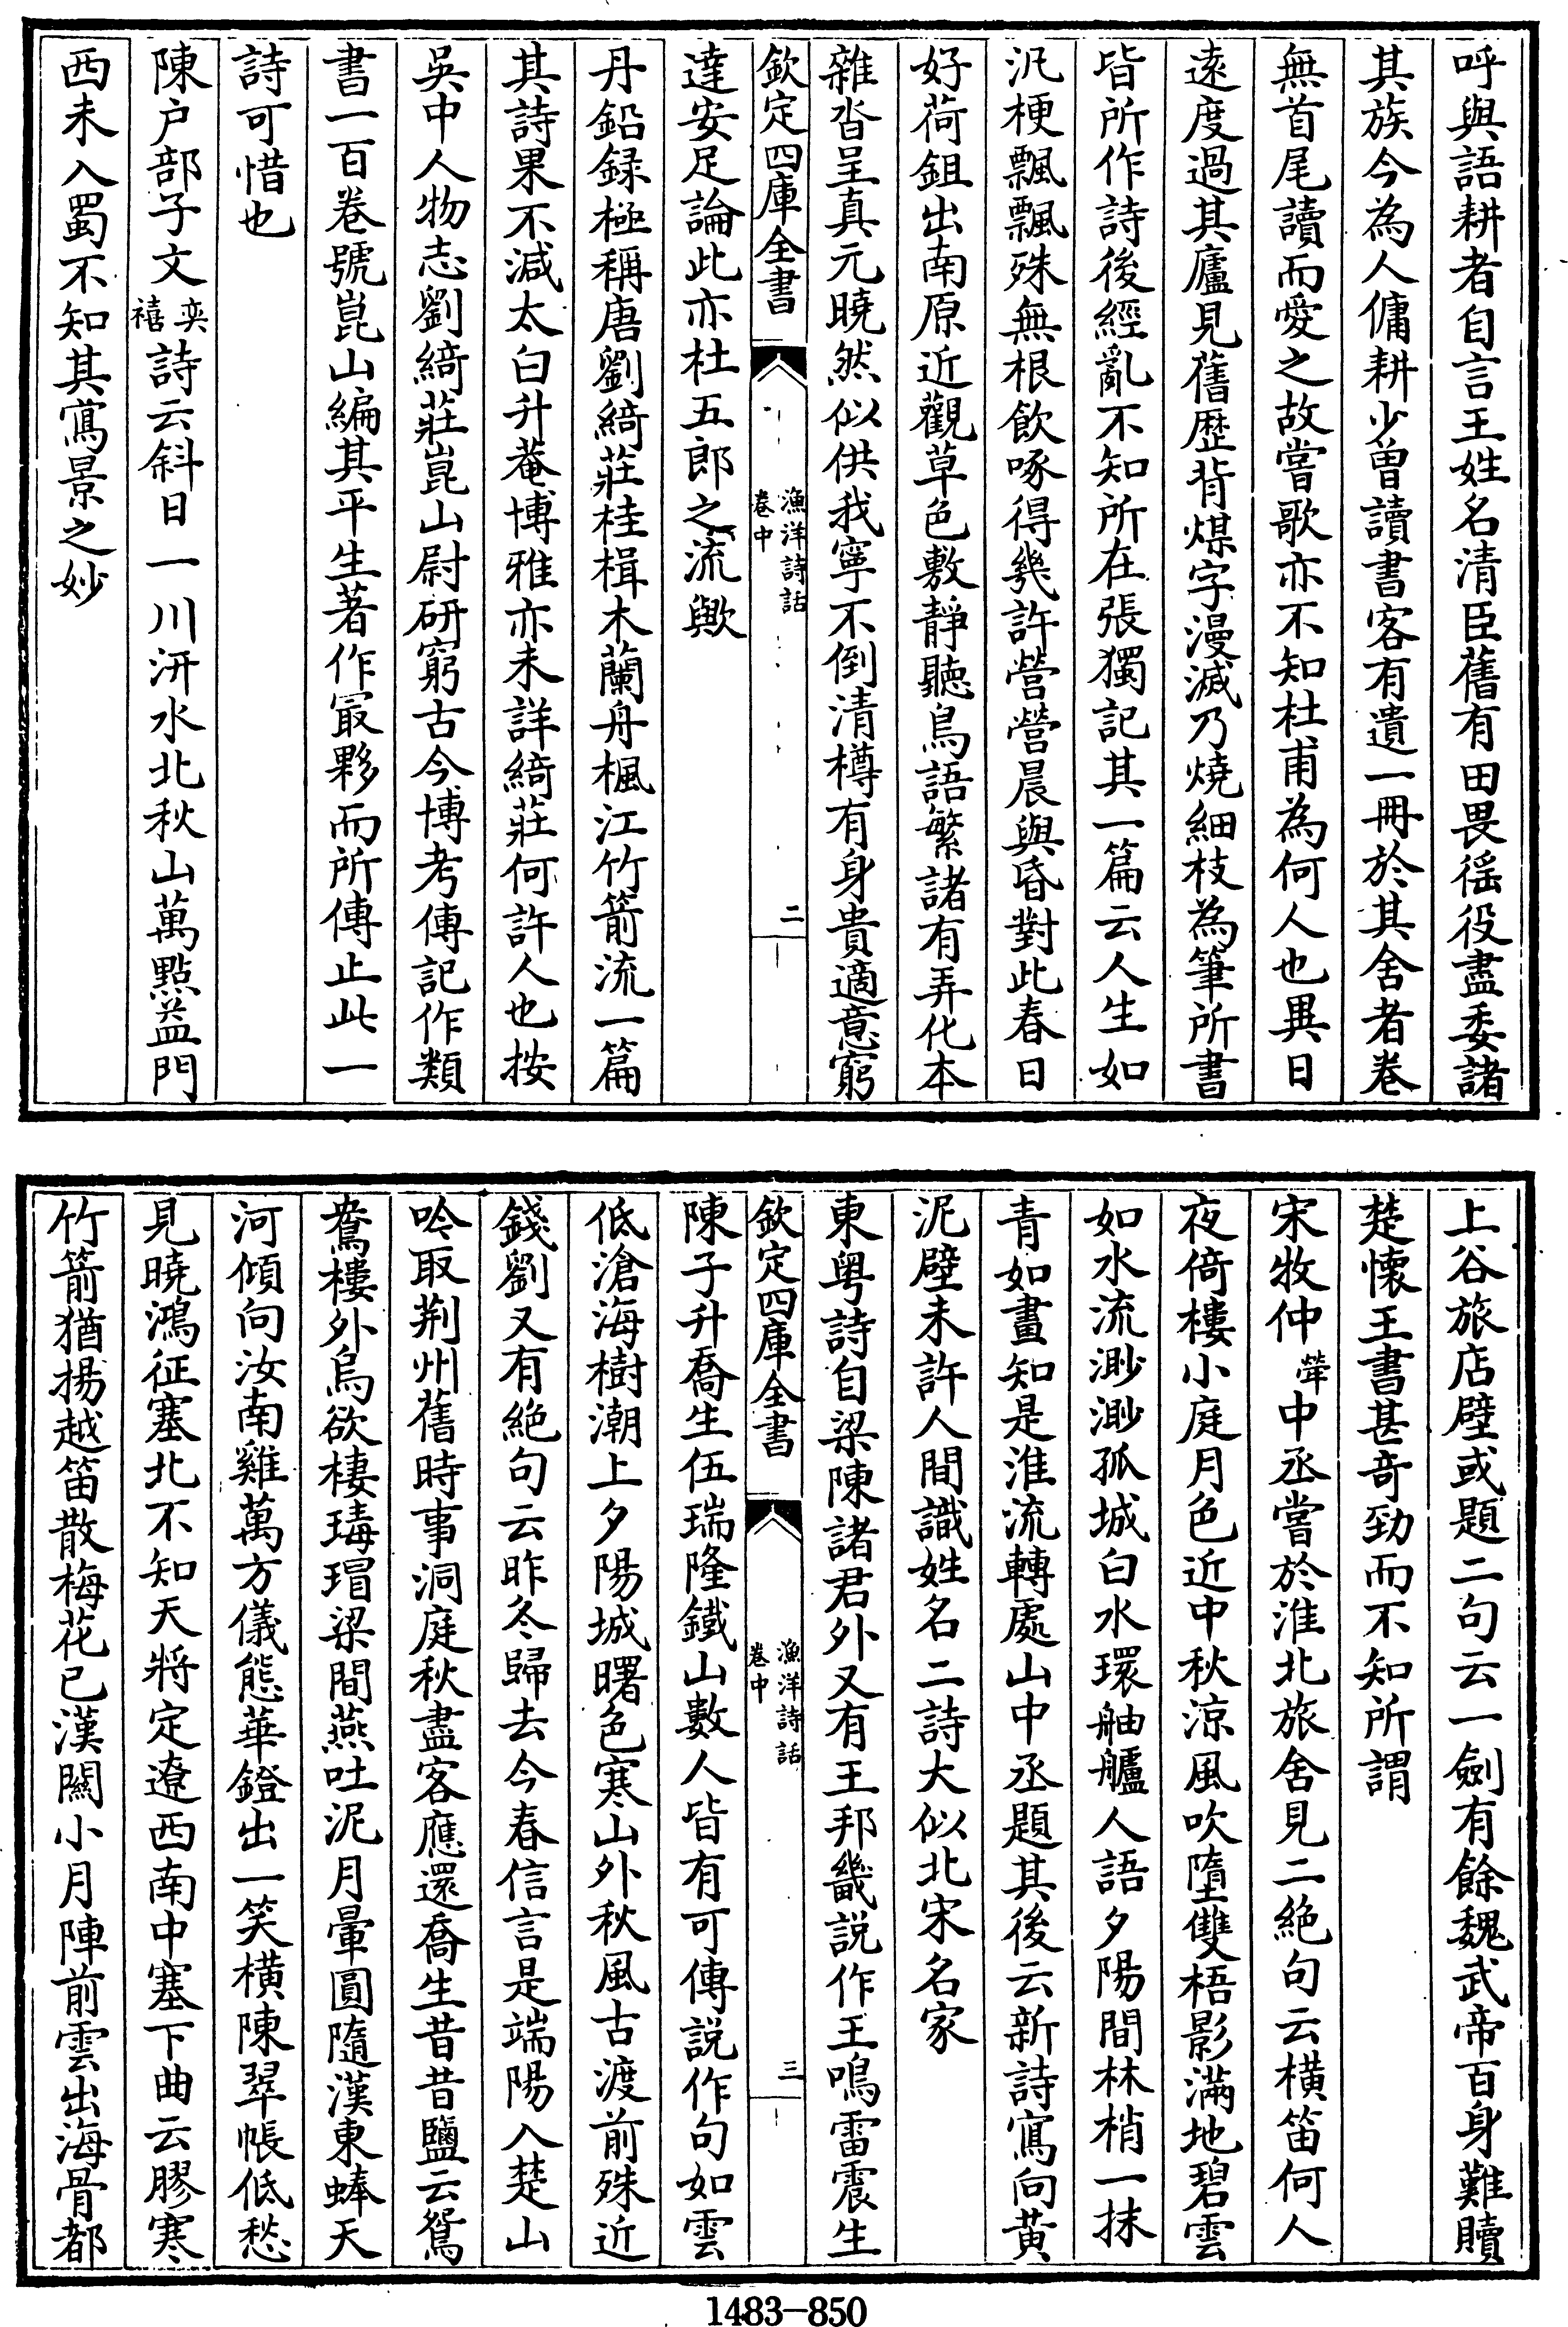 呼與語耕者自言王姓名清臣舊有田畏徭役盡委諸
其族今為人傭耕少曽讀書客有遺一冊於其舍者卷
無首尾讀而愛之故嘗歌亦不知杜甫為何人也異日
逺度過其廬見舊歴背煤字漫滅乃燒細枝為筆所書
皆所作詩後經亂不知所在張獨記其一篇云人生如
汎梗飄飄殊無根飲啄得幾許營營晨與昏對此春日
好荷鉏出南原近觀草色敷靜聽鳥語繁諸有弄化本
雜沓呈真元曉然似供我寧不倒清樽有身貴適意窮
欽定四庫全書
漁洋詩話
卷中
二
達安足論此亦杜五郎之流歟
丹鉛録極稱唐劉綺莊桂楫木蘭舟楓江竹箭流一篇
其詩果不減太白升菴博雅亦未詳綺莊何許人也按
吳中人物志劉綺莊崑山尉研窮古今博考傳記作類
書一百卷號崑山編其平生著作冣夥而所傳止此一
詩可惜也
陳户部子文奕禧詩云斜日一川汧水北秋山萬點益門
西未入蜀不知其寫景之妙
上谷旅店壁或題二句云一劍有餘魏武帝百身難贖
楚懐王書甚竒勁而不知所謂
宋牧仲犖中丞嘗於淮北旅舍見二絶句云横笛何人
夜倚樓小庭月色近中秋涼風吹墮雙梧影滿地碧雲
如水流渺渺孤城白水環舳艫人語夕陽間林梢一抹
青如畫知是淮流轉處山中丞題其後云新詩寫向黄
泥壁未許人間識姓名二詩大似北宋名家
東粤詩自梁陳諸君外又有王邦畿説作王鳴雷震生
欽定四庫全書
漁洋詩話
卷中
三
陳子升喬生伍瑞隆鐵山數人皆有可傳説作句如雲
低滄海樹潮上夕陽城曙色寒山外秋風古渡前殊近
錢劉又有絶句云昨冬歸去今春信言是端陽入楚山
吟取荆州舊時事洞庭秋盡客應還喬生昔昔鹽云鴛
鴦樓外烏欲棲瑇瑁梁間燕吐泥月暈圓隨漢東蜯天
河傾向汝南雞萬方儀態華鐙出一笑横陳翠帳低愁
見曉鴻征塞北不知天將定遼西南中塞下曲云膠寒
竹箭猶揚越笛散梅花已漢闗小月陣前雲出海骨都
1483-850